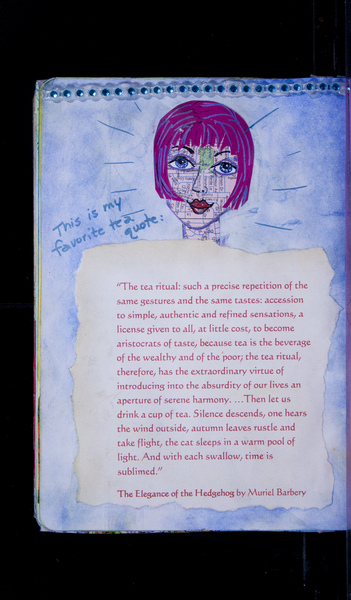 This is my
favorite tea
quote:
"The tea ritual: such a precise repetition of the
same gestures and the same tastes: accession
to simple, authentic and refined sensations, a
license given to all, at little cost, to become
aristocrats of taste, because tea is the beverage
of the wealthy and of the poor; the tea ritual,
therefore, has the extraordinary virtue of
introducing into the absurdity of our lives an
aperture of serene harmony. ...Then let us
drink a cup of tea. Silence descends, one hears
the wind outside, autumn leaves rustle and
take flight, the cat sleeps in a warm pool of
light. And with each swallow, time is
sublimed."
The Elegance of the Hedgehog by Muriel Barbery